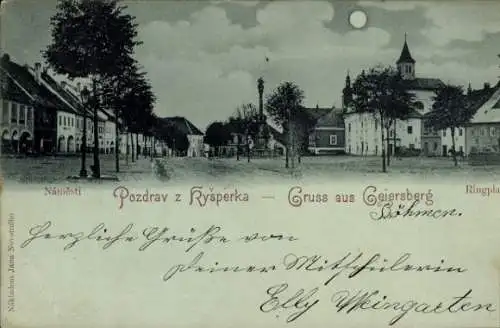 Náměstí
Pozdrav z Kyšperka — Gruss aus Geiersberg
Ringpla
Böhmen.
Herzliche Grüße von
Deiner Mitschülerin
Elly Weingarten
Nákladem Jana Novotného